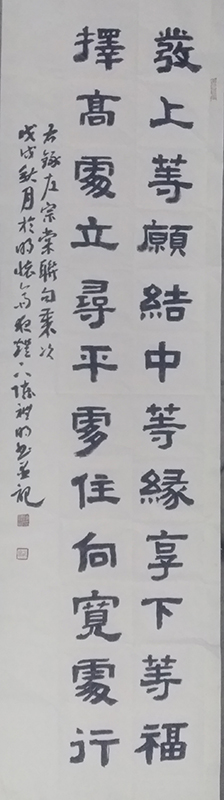 發上等願結中等緣享下等福
擇高處立尋平處住向寬處行
右錄左宗棠聯句乘次
戊戌秋月於明